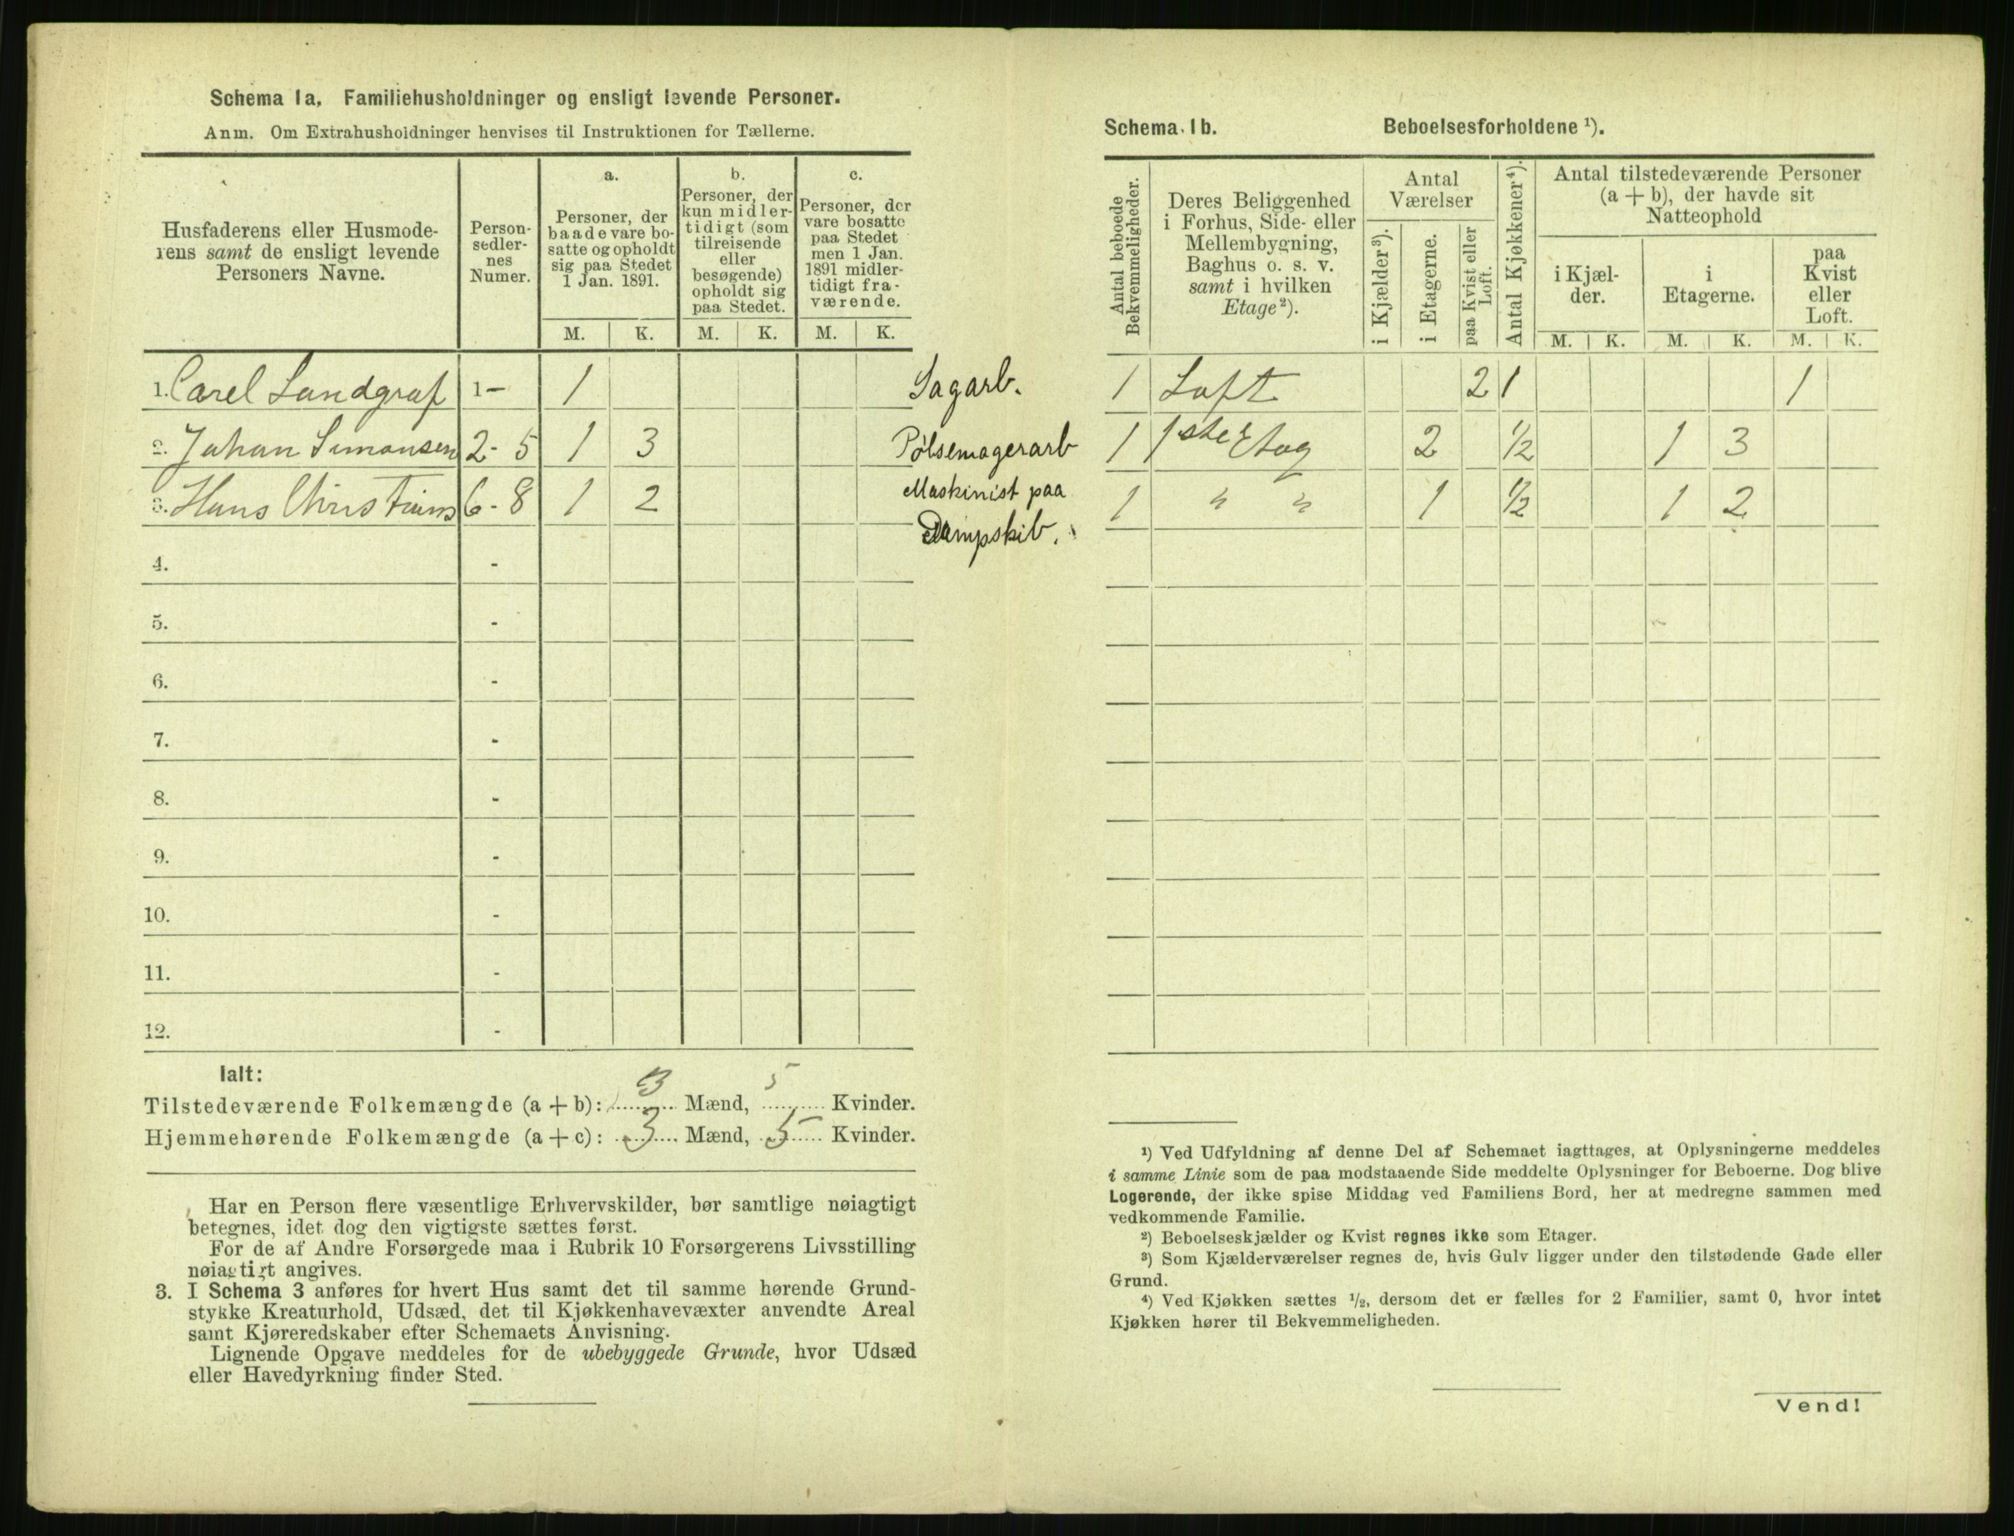 Schema 1a. Familiehusholdninger og ensligt levende Personer.
Anm. Om Extrahusholdninger henvises til Instruktionen for Tællerne.
Husfaderens eller Husmoderens samt de ensligt levende Personers Navne.
Person-sedlernes Numer.
a.
Personer, der baade vare bosatte og opholdt sig paa Stedet 1 Jan. 1891.
b.
Personer, der kun midlertidigt (som tilreisende eller besøgende) opholdt sig paa Stedet.
c.
Personer, der vare bosatte paa Stedet men 1 Jan. 1891 midlertidigt fraværende.
M. K. M. K. M. K.
1. Carel Landgraf 1- 1 Sagarb.
2. Johan Simonsen 2-5 1 3 Pølsemagerarb
3. Hans 6-8 1 2 Maskinist paa
Dampskib.
4. -
5. -
6. -
7. -
8. -
9. -
10. -
11. -
12. -
Ialt:
Tilstedeværende Folkemængde (a+b): 3 Mænd, 5 Kvinder.
Hjemmehørende Folkemængde (a+c): 3 Mænd, 5 Kvinder.
Har en Person flere væsentlige Erhvervskilder, bør samtlige nøiagtigt
betegnes, idet dog den vigtigste sættes først.
For de af Andre Forsørgede maa i Rubrik 10 Forsørgerens Livsstilling
nøiagtigt angives.
3. I Schema 3 anføres for hvert Hus samt det til samme hørende Grund-
stykke Kreaturhold, Udsæd, det til Kjøkkenhavevæxter anvendte Areal
samt Kjøreredskaber efter Schemaets Anvisning.
Lignende Opgave meddeles for de ubebyggede Grunde, hvor Udsæd
eller Havedyrkning finder Sted.
Schema 1b. Beboelsesforholdene ¹).
Antal beboede Bekvemmeligheder.
Deres Beliggenhed i Forhus, Side- eller Mellembygning, Baghus o. s. v. samt i hvilken Etage²).
Antal Værelser
i Kjælder³).
i Etagerne.
paa Kvist eller Loft.
Antal Kjøkkener⁴).
Antal tilstedeværende Personer (a+b), der havde sit Natteophold
i Kjælder.
i Etagerne.
paa Kvist eller Loft.
M. K. M. K. M. K.
1 Loft 2 1 1
1 1ste Etag 2 ½ 1 3
1 " " 1 ½ 1 2
¹) Ved Udfyldning af denne Del af Schemaet iagttages, at Oplysningerne meddeles
i samme Linie som de paa modstaaende Side meddelte Oplysninger for Beboerne. Dog blive
Logerende, der ikke spise Middag ved Familiens Bord, her at medregne sammen med
vedkommende Familie.
²) Beboelseskjælder og Kvist regnes ikke som Etager.
³) Som Kjælderværelser regnes de, hvis Gulv ligger under den tilstødende Gade eller
Grund.
⁴) Ved Kjøkken sættes ½, dersom det er fælles for 2 Familier, samt 0, hvor intet
Kjøkken hører til Bekvemmeligheden.
Vend!